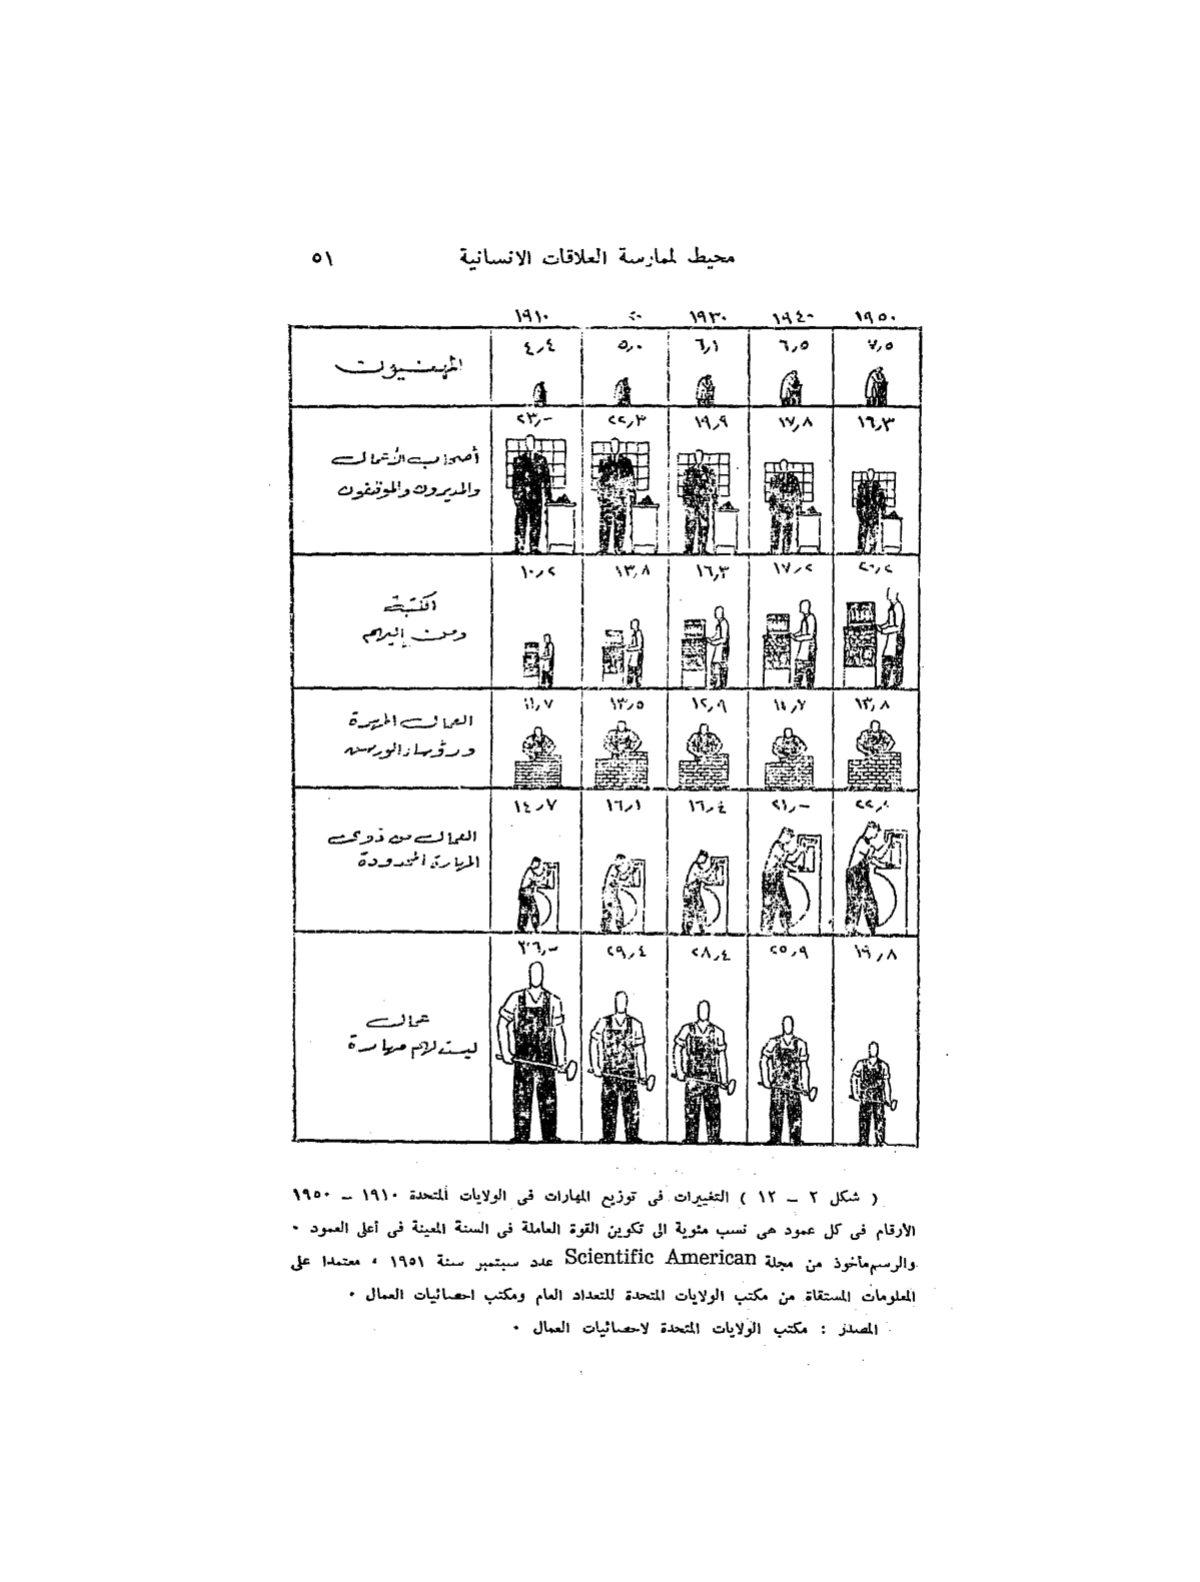 محيط لممارسة العلاقات الانسانية ٥١
١٩١٠ ٢٠ ١٩٣٠ ١٩٤٠ ١٩٥٠
المهنيون ٤,٤ ٥,٠ ٦,١ ٦,٥ ٧,٥
٢٣,٠ ٢٢,٣ ١٩,٩ ١٧,٨ ١٦,٣
أصحاب الأعمال
والمديرون والموظفون
١٠,٢ ١٣,٨ ١٦,٣ ١٧,٢ ٢٠,٢
الكتبة
ومن إليهم
١١,٧ ١٣,٥ ١٢,٩ ١١,٧ ١٣,٨
العمال المهرة
ورؤساء الورش
١٤,٧ ١٦,١ ١٦,٤ ٢١,٠
العمال من ذوى
المهارة المحدودة
٣٦,٠ ٢٩,٤ ٢٨,٤ ٢٥,٩ ١٩,٨
عمال
ليست لهم مهارة
( شكل ٢ – ١٢ ) التغييرات فى توزيع المهارات فى الولايات المتحدة ١٩١٠ – ١٩٥٠
الأرقام فى كل عمود هى نسب مئوية الى تكوين القوة العاملة فى السنة المعينة فى أعلى العمود ٠
والرسم مأخوذ من مجلة Scientific American عدد سبتمبر سنة ١٩٥١ ، معتمدا على
المعلومات المستقاة من مكتب الولايات المتحدة للتعداد العام ومكتب احصائيات العمال ٠
المصدر : مكتب الولايات المتحدة لاحصائيات العمال ٠